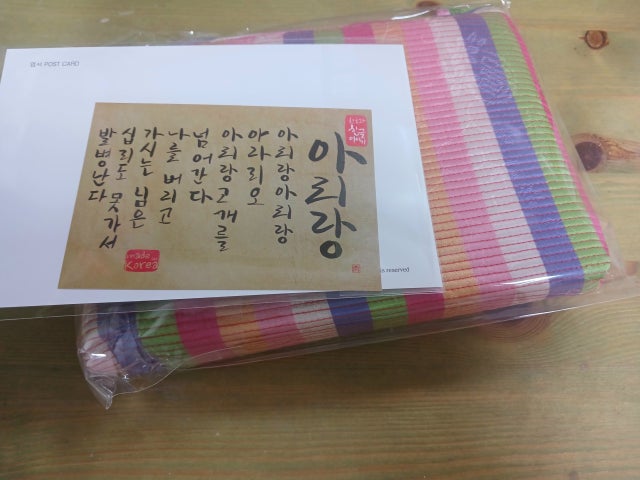 엽서 POST CARD
아리랑
아리랑아리랑
아라리오
아리랑고개를
넘어간다
나를 버리고
가시는 님은
십리도 못가서
발병난다
made in
Korea
reserved